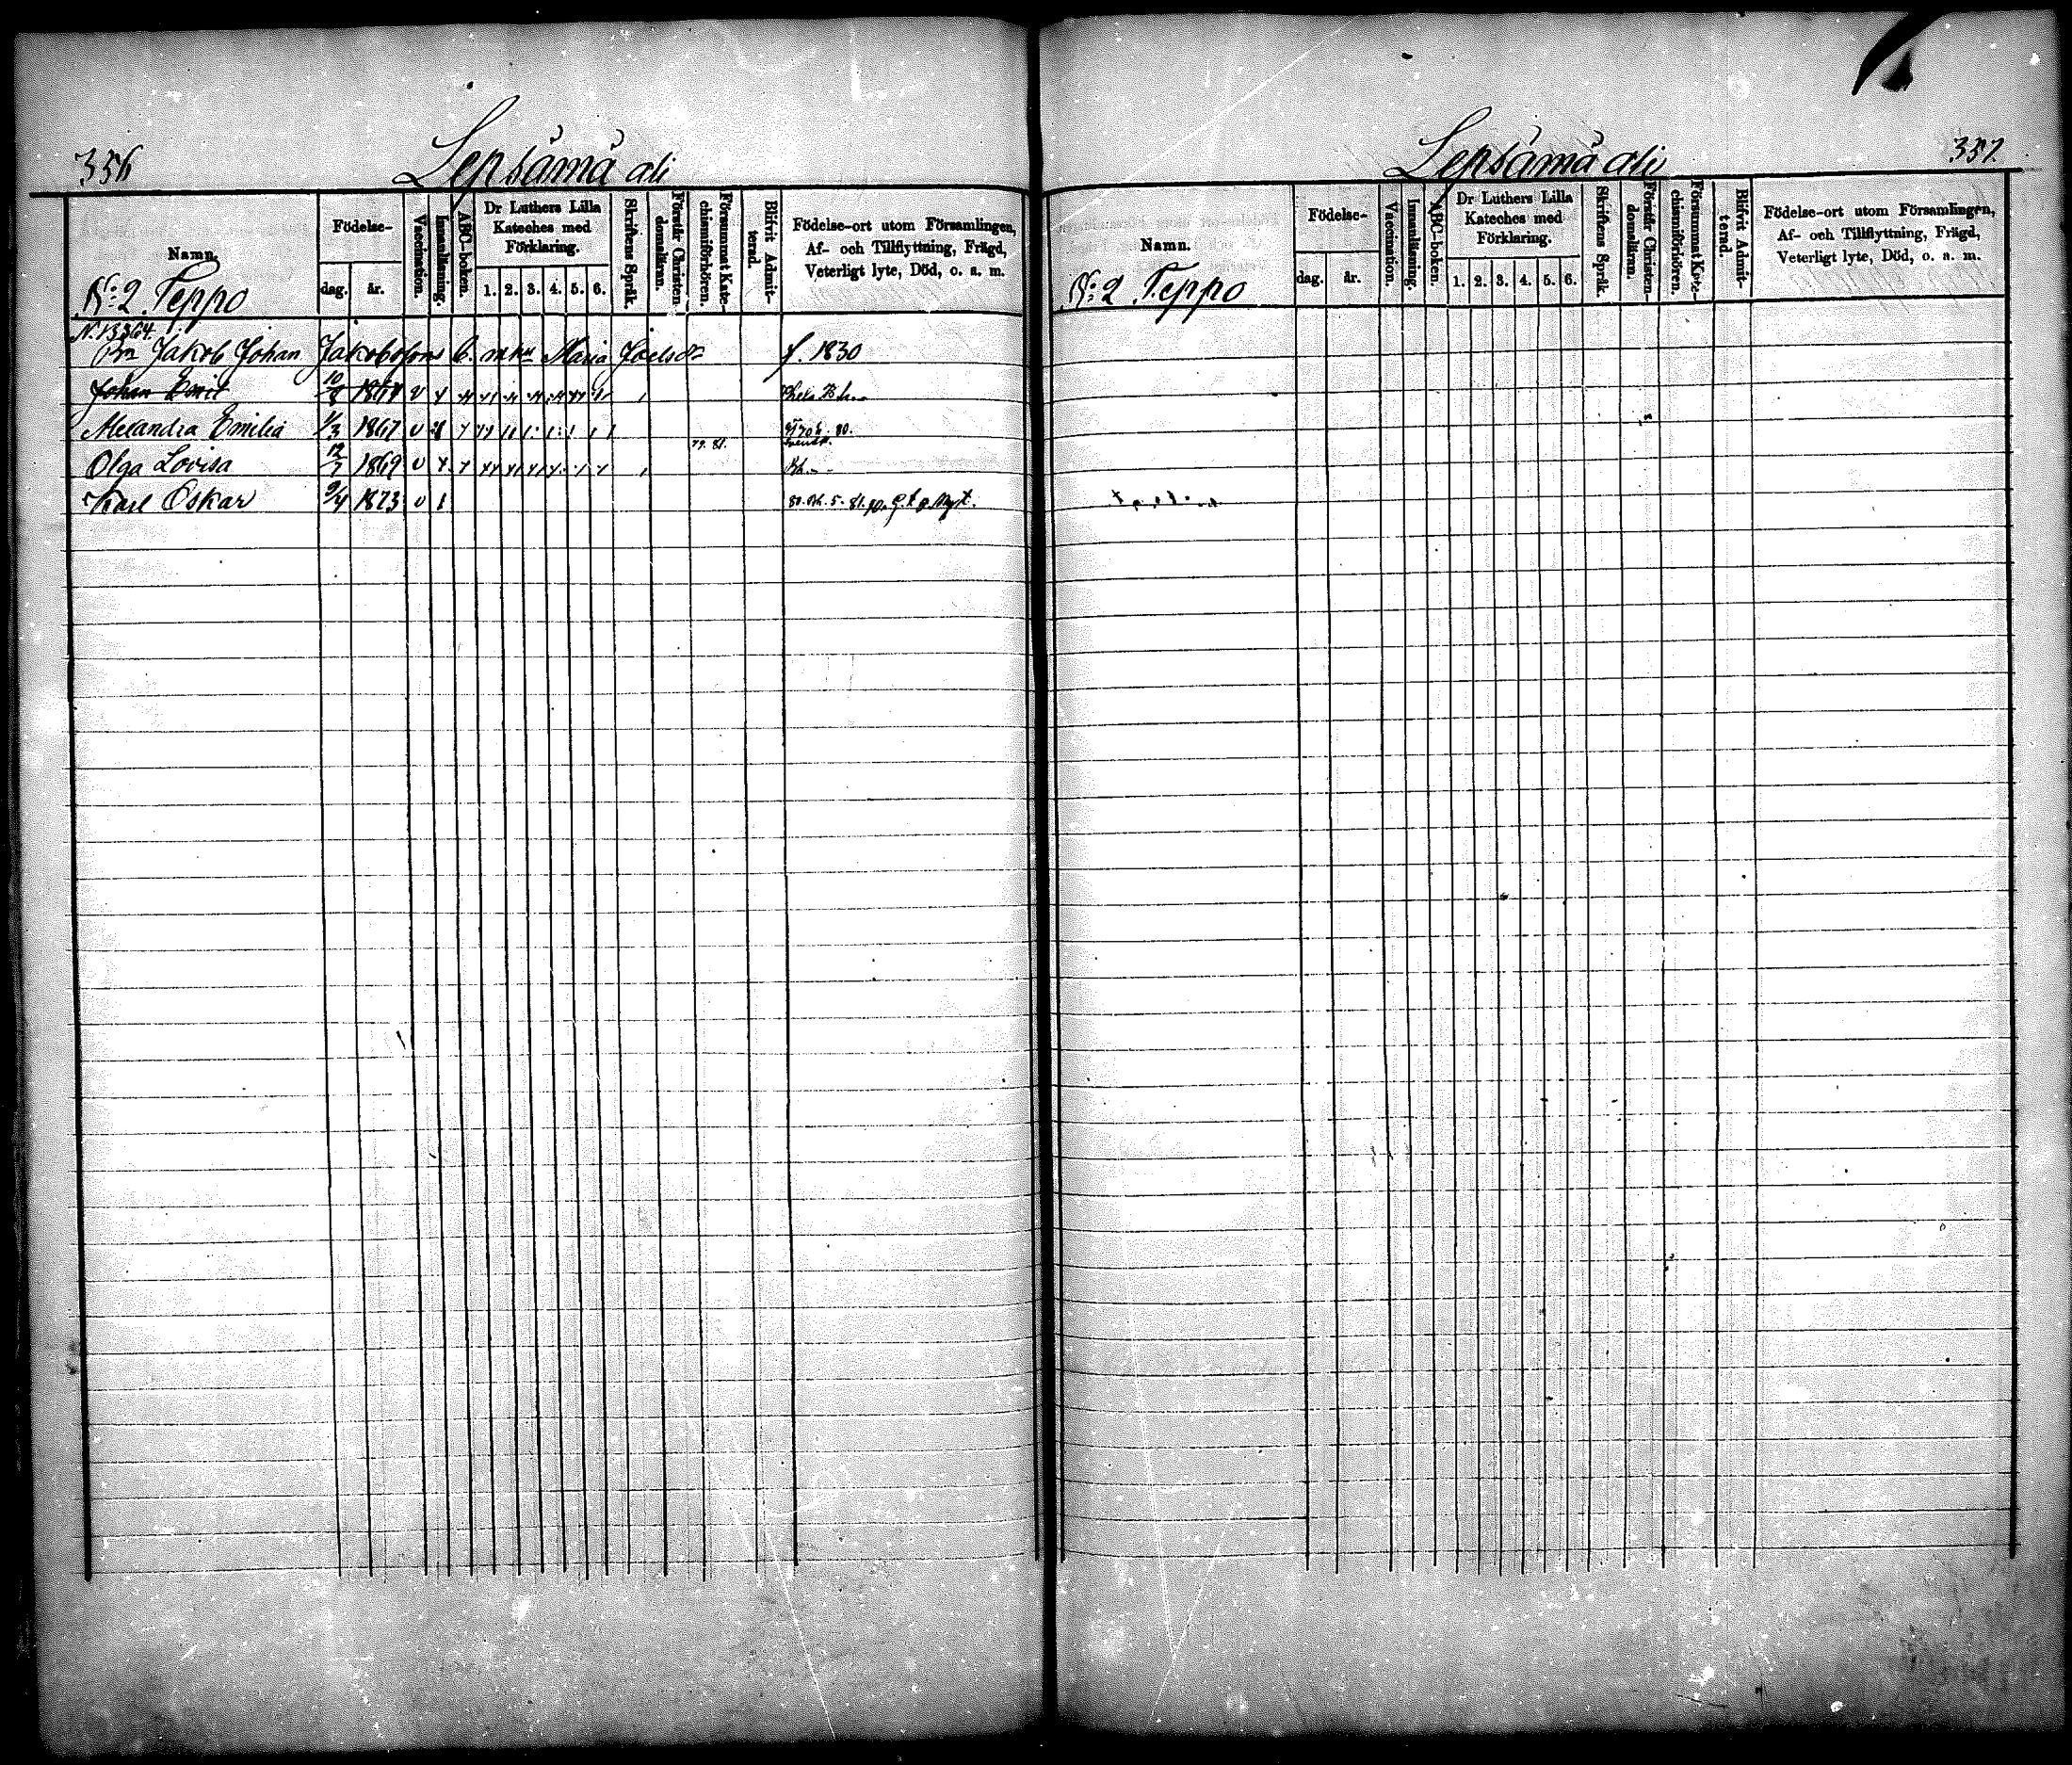 356
Lepsämä ali
Namn.
Födelse-
dag.
år.
Vaccination.
Innanläsning.
ABC-boken.
Dr Luthers Lilla
Kateches med
Förklaring.
1. 2. 3. 4. 5. 6.
Skriftens Språk.
Förstår Christen-
domsläran.
Försummat Kate-
chismiförhören.
Blifvit Admit-
terad.
Födelse-ort utom Församlingen,
Af- och Tillflyttning, Frägd,
Veterligt lyte, Död, o. a. m.
No: 2 Teppo
Jakob Johan Jakobsson Maria Joelsdr f. 1830
Johan Emil 10/8
Alexandra Emilia 1/3 1867 v
79. 81.
Olga Lovisa 12/7 1869 v
Karl Oskar 9/4 1873 v 1
Lepsämä ali
357.
Namn.
Födelse-
dag.
år.
Vaccination.
Innanläsning.
ABC-boken.
Dr Luthers Lilla
Kateches med
Förklaring.
1. 2. 3. 4. 5. 6.
Skriftens Språk.
Förstår Christen-
domsläran.
Försummat Kate-
chismiförhören.
Blifvit Admit-
terad.
Födelse-ort utom Församlingen,
Af- och Tillflyttning, Frägd,
Veterligt lyte, Död, o. a. m.
No: 2 Teppo